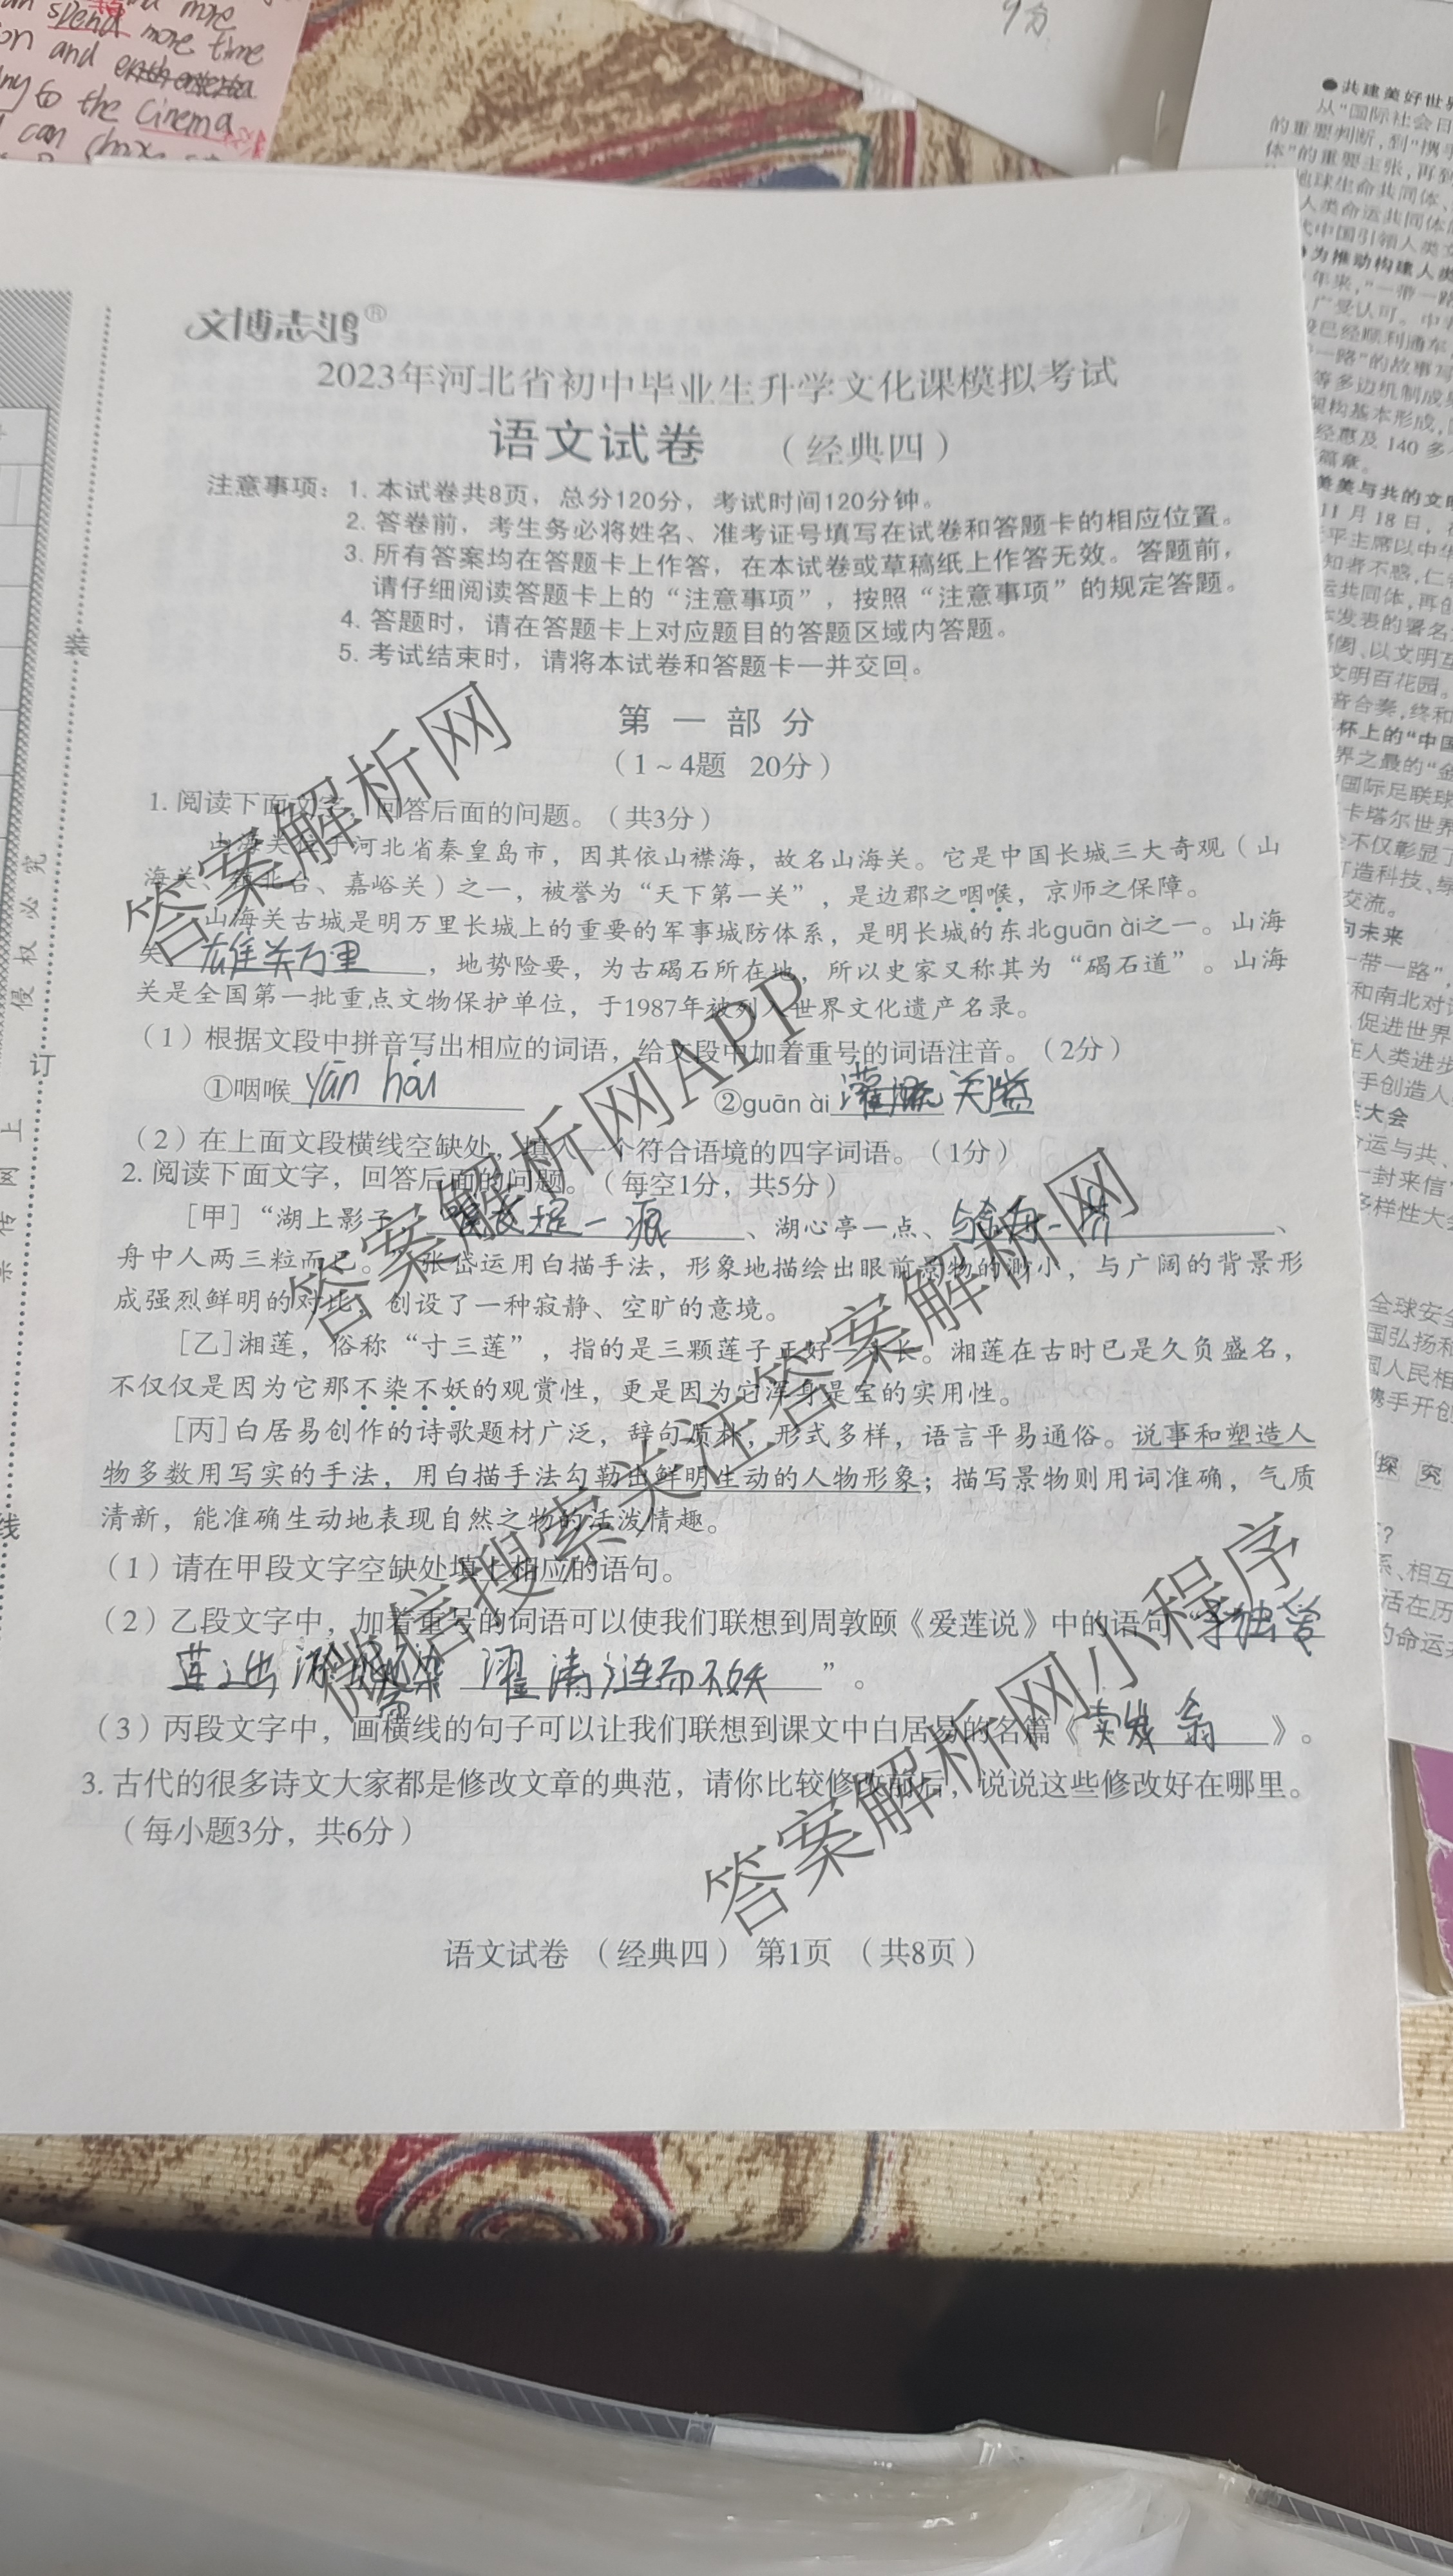 spend more time
and
to the cinema
can
9分
●共建美好世界
从“国际社会日
的重要判断，到“携手
体”的重要主张，再到
地球生命共同体、
人类命运共同体
代中国引领人类文
为推动构建人类
年来，“一带一路
广受认可。中
段已经顺利通车
一路”的故事写
等多边机制成
架构基本形成，
经惠及 140 多
篇章。
美美与共的文明
11 月 18 日，
文博志鸿®
2023年河北省初中毕业生升学文化课模拟考试
语文试卷 （经典四）
注意事项：1. 本试卷共8页，总分120分，考试时间120分钟。
2. 答卷前，考生务必将姓名、准考证号填写在试卷和答题卡的相应位置。
3. 所有答案均在答题卡上作答，在本试卷或草稿纸上作答无效。答题前，
请仔细阅读答题卡上的“注意事项”，按照“注意事项”的规定答题。
4. 答题时，请在答题卡上对应题目的答题区域内答题。
5. 考试结束时，请将本试卷和答题卡一并交回。
第 一 部 分
（1～4题 20分）
1. 阅读下面文字，回答后面的问题。（共3分）
山海关位于河北省秦皇岛市，因其依山襟海，故名山海关。它是中国长城三大奇观（山
海关、镇北台、嘉峪关）之一，被誉为“天下第一关”，是边郡之咽喉，京师之保障。
山海关古城是明万里长城上的重要的军事城防体系，是明长城的东北guān ài之一。山海
关 雄关万里 ，地势险要，为古碣石所在地，所以史家又称其为“碣石道”。山海
关是全国第一批重点文物保护单位，于1987年被列入世界文化遗产名录。
（1）根据文段中拼音写出相应的词语，给文段中加着重号的词语注音。（2分）
①咽喉 yān hóu ②guān ài 关隘
（2）在上面文段横线空缺处，填入一个符合语境的四字词语。（1分）
2. 阅读下面文字，回答后面的问题。（每空1分，共5分）
［甲］“湖上影子， 长堤一痕 、湖心亭一点、 与余舟一芥 、
舟中人两三粒而已。”张岱运用白描手法，形象地描绘出眼前景物的渺小，与广阔的背景形
成强烈鲜明的对比，创设了一种寂静、空旷的意境。
［乙］湘莲，俗称“寸三莲”，指的是三颗莲子正好一寸长。湘莲在古时已是久负盛名，
不仅仅是因为它那不染不妖的观赏性，更是因为它浑身是宝的实用性。
［丙］白居易创作的诗歌题材广泛，辞句质朴，形式多样，语言平易通俗。说事和塑造人
物多数用写实的手法，用白描手法勾勒出鲜明生动的人物形象；描写景物则用词准确，气质
清新，能准确生动地表现自然之物的活泼情趣。
（1）请在甲段文字空缺处填上相应的语句。
（2）乙段文字中，加着重号的词语可以使我们联想到周敦颐《爱莲说》中的语句“予独爱
莲之出淤泥而不染 濯清涟而不妖 ”。
（3）丙段文字中，画横线的句子可以让我们联想到课文中白居易的名篇《 卖炭翁 》。
3. 古代的很多诗文大家都是修改文章的典范，请你比较修改前后，说说这些修改好在哪里。
（每小题3分，共6分）
语文试卷 （经典四） 第1页 （共8页）
装
订
线
侵 权 必 究
答案解析网
答案解析网APP
微信搜索关注答案解析网
答案解析网小程序